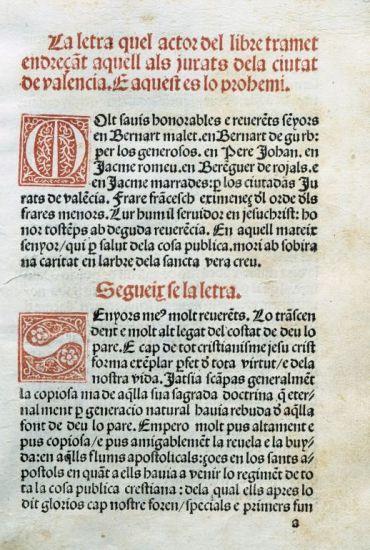 La letra quel actor del libre tramet
endreçãt aquell als jurats dela ciutat
de valencia. E aquest es lo prohemi.
MOlt sauis honorables e reuerẽts sẽyors
en Bernart malet. en Bernart de gurb:
per los generosos. en Pere Johan. en
Jacme romeu. en Berẽguer de rojals. e
en Jacme marrades: ꝑ los ciutadãs Ju
rats de valẽcia. Frare frãcesch eximeneç đl orde đls
frares menors. Lur humil seruidor en jesuchrist: ho
nor tostẽps ab deguda reuerẽcia. En aquell mateix
senyor / qui ꝑ salut dela cosa publica. mori ab sobira
na caritat en larbre dela sancta vera creu.
Segueix se la letra.
SEnyors meꝰ molt reuerẽts. Lo trãscen
dent e molt alt legat del costat de deu lo
pare. E cap de tot cristianisme jesu crist
forma exẽplar ꝑfet đ tota virtut / e dela
nostra vida. Jatsia scãpas generalmẽt
la copiosa ma de aq̃lla sua sagrada doctrina q̃ eter-
nalment ꝑ generacio natural hauia rebuda đ aq̃lla
font de deu lo pare. Empero molt pus altament e
pus copiosa / e pus amigablemẽt la reuela e la buy-
da: en aq̃lls flums apostolicals: ço es en los sants a-
postols en quãt a ells hauia a venir lo regimẽt de to
ta la cosa publica crestiana: dela qual ells apres lo
dit glorios cap nostre foren / specials e primers fun
a